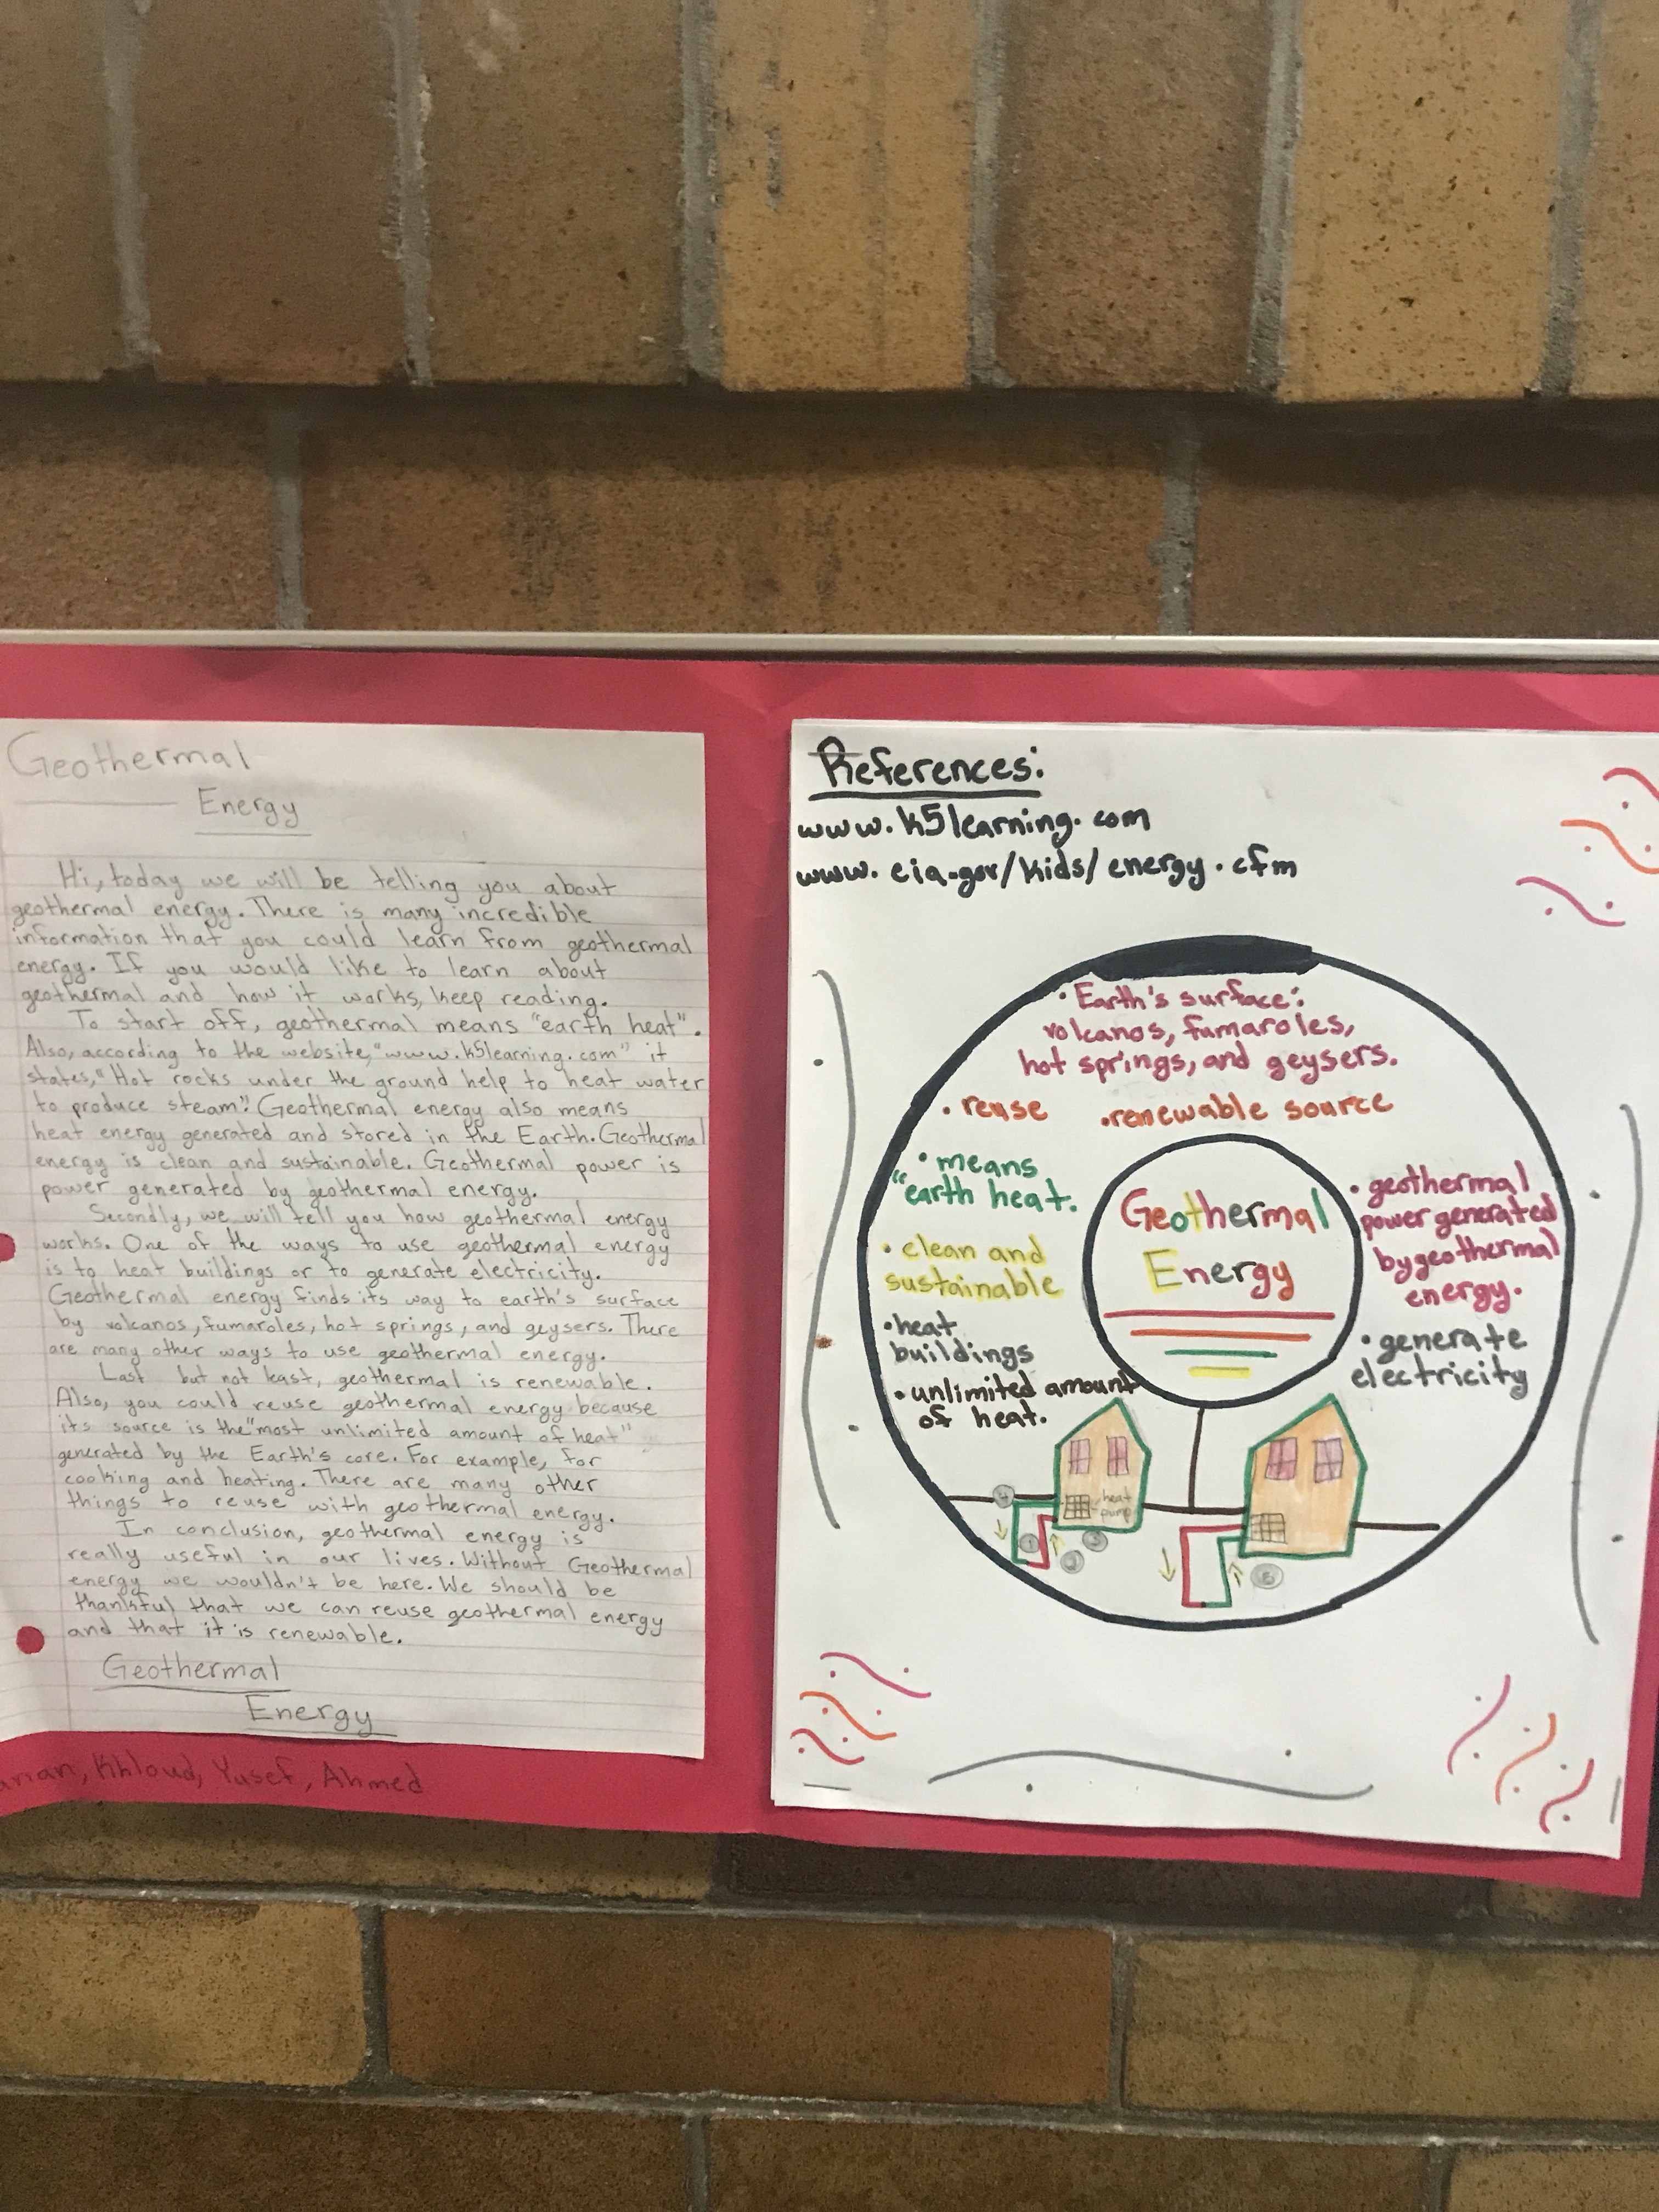 Geothermal
Energy
Hi, today we will be telling you about
geothermal energy. There is many incredible
information that you could learn from geothermal
energy. If you would like to learn about
geothermal and how it works, keep reading.
To start off, geothermal means "earth heat".
Also, according to the website, "www.k5learning.com" it
states, "Hot rocks under the ground help to heat water
to produce steam". Geothermal energy also means
heat energy generated and stored in the Earth. Geothermal
energy is clean and sustainable. Geothermal power is
power generated by geothermal energy.
Secondly, we will tell you how geothermal energy
works. One of the ways to use geothermal energy
is to heat buildings or to generate electricity.
Geothermal energy finds its way to earth's surface
by volcanos, fumaroles, hot springs, and geysers. There
are many other ways to use geothermal energy.
Last but not least, geothermal is renewable.
Also, you could reuse geothermal energy because
its source is the "most unlimited amount of heat"
generated by the Earth's core. For example, for
cooking and heating. There are many other
things to reuse with geothermal energy.
In conclusion, geothermal energy is
really useful in our lives. Without Geothermal
energy we wouldn't be here. We should be
thankful that we can reuse geothermal energy
and that it is renewable.
Geothermal
Energy
Khloud, Yusef, Ahmed
References:
www.k5learning.com
www.eia.gov/kids/energy.cfm
• Earth's surface:
volcanos, fumaroles,
hot springs, and geysers.
• reuse
• renewable source
• means
"earth heat.
• clean and
sustainable
• heat
buildings
• unlimited amount
of heat.
Geothermal
Energy
• geothermal
power generated
by geothermal
energy.
• generate
electricity
heat
pump
4
1
2
3